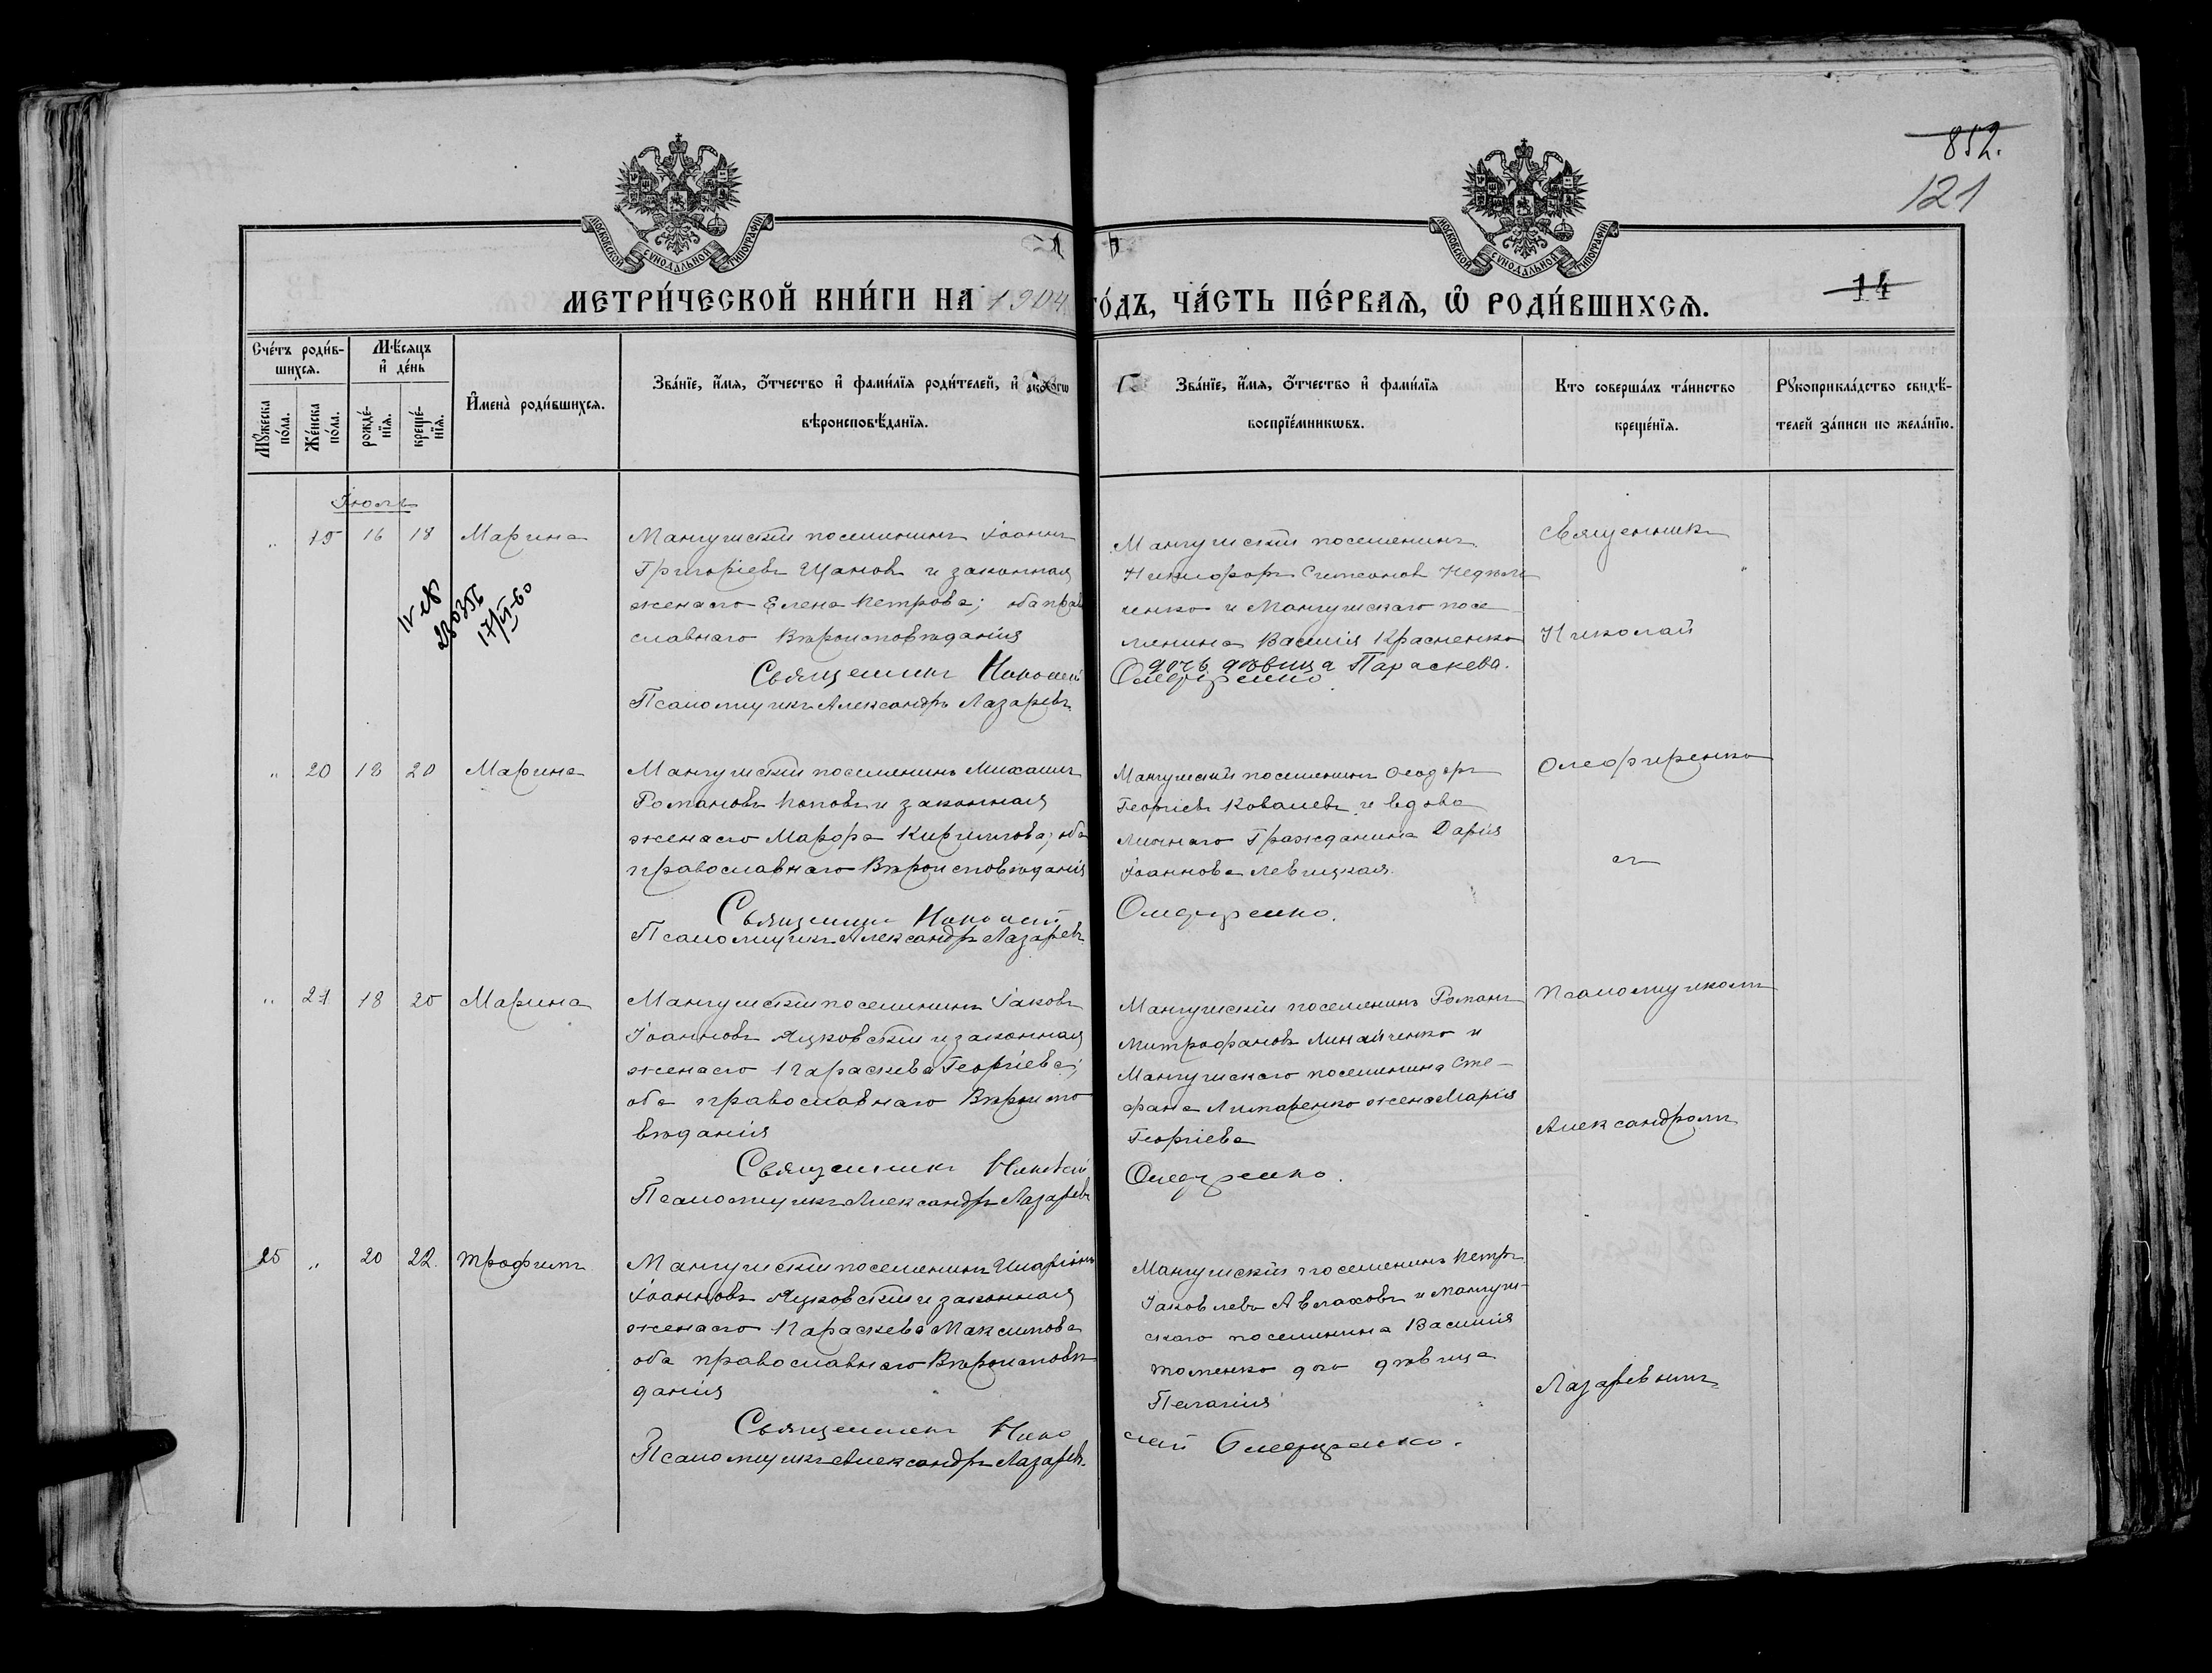 852.
121
МОСКОВСКОЙ СѴНОДАЛЬНОЙ ТИПОГРАФІИ
МОСКОВСКОЙ СѴНОДАЛЬНОЙ ТИПОГРАФІИ
14
МЕТРИ́ЧЕСКОЙ КНИ́ГИ НА 1904 ГО́ДЪ, ЧА́СТЬ ПЕ́РВАЯ, Ѡ҆ РОДИ́ВШИХСЯ.
Сче́тъ роди́в-
шихся.
Мꙋжеска по́ла.
Же́нска по́ла.
Мѣ́сяцъ и҆ де́нь
рожде́-нїя.
креще́-нїя.
И҆мена̀ роди́вшихся.
Зва́нїе, и҆́мя, ѻ҆́тчество и҆ фами́лїя роди́телей, и҆ како́гѡ
вѣроисповѣ́данїя.
Зва́нїе, и҆́мя, ѻ҆́тчество и҆ фами́лїя
воспрїе́мникѡвъ.
Кто соверша́лъ та́инство
креще́нїя.
Рꙋкоприкла́дство свидѣ́-
телей за́писи по жела́нїю.
Іюль
„ 19 16 18 Марина
Мангушскій поселянинъ Іоаннъ
Григоріевъ Цановъ и законная
жена его Елена Петрова; оба право
славнаго Вѣроисповѣданія
Священникъ Николай
Псаломщикъ Александръ Лазаревъ.
Мангушскій поселянинъ
Никифоръ Симеоновъ
ченко и Мангушскаго посе
лянина Василія Красненко
дочь дѣвица Параскева.
Олефиренко.
Священникъ
Николай
IV ЕЯ
280356
17/VI-60
„ 20 18 20 Марина
Мангушскій поселянинъ Михаилъ
Романовъ Поповъ и законная
жена его Марфа Кириллова; оба
православнаго Вѣроисповѣданія
Священникъ Николай
Псаломщикъ Александръ Лазаревъ.
Мангушскій поселянинъ Ѳеодоръ
Георгіевъ Ковалевъ и вдова
Личнаго Гражданина Дарія
Іоаннова Левицкая.
Олефиренко.
Олефиренко
съ
„ 21 18 20 Марина
Мангушскій поселянинъ Іаковъ
Іоанновъ Яцковскій и законная
жена его Параскева Георгіева;
оба православнаго Вѣроиспо
вѣданія
Священникъ Николай
Псаломщикъ Александръ Лазаревъ
Мангушскій поселянинъ Романъ
Митрофановъ Минайченко и
Мангушскаго поселянина Сте-
фана Литаренко жена Марія
Георгіева
Олефиренко.
Псаломщикомъ
Александромъ
25 „ 20 22. Трофимъ
Мангушскій поселянинъ Иларіонъ
Іоанновъ Яцковскій и законная
жена его Параскева Максимова
оба православнаго Вѣроисповѣ
данія
Священникъ Нико
Псаломщикъ Александръ Лазаревъ.
Мангушскій поселянинъ Петръ
Іаковлевъ Авлаховъ и Мангуш-
скаго поселянина Василія
Томенко дочь дѣвица
Пелагія
лай Олефиренко.
Лазаревымъ